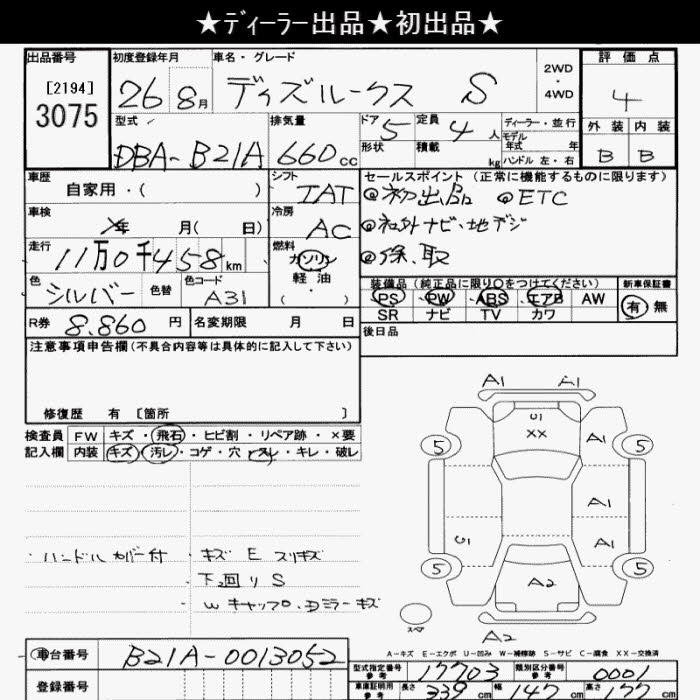 ★ディーラー出品★初出品★
出品番号 初度登録年月 車名・グレード 2WD・4WD 評価点
[2194] 3075 26 8月 ディズルークス S 4
型式 排気量 ドア 定員 ディーラー・並行 外装 内装
DBA-B21A 660cc 5 4人 モデル年式 年 B B
形状 積載 kg ハンドル 左・右
車歴 シフト セールスポイント (正常に機能するものに限ります)
自家用・( ) IAT ◎初出品 ◎ETC
車検 年 月( 日) 冷房 AC ◎社外ナビ、地デジ
走行 11万0千458km 燃料 ガソリン ◎保、取
軽油 ・( )
色 シルバー 色替 色コード A31
装備品 (純正品に限り○をつけてください) 新車保証書
PS PW ABS エアB AW 有・無
SR ナビ TV カワ
R券 8.860円 名変期限 月 日 後日品
注意事項申告欄(不具合内容等は具体的に記入して下さい)
修復歴 有 [箇所 ]
検査員 FW キズ・飛石・ヒビ割・リペア跡・×要
記入欄 内装 キズ・汚レ・コゲ・穴・スレ・キレ・破レ
・ハンドルカバー付 ・キズ E スリキズ
下回り S
・W キャップ、ドミラーキズ
A1 A1
U1
XX
5 A1 5
A1
U1 A1
5 5
A2
スペア
A2
A-キズ E-エクボ U-凹み W-補修跡 S-サビ C-腐食 XX-交換済
車台番号 B21A-0013052 型式指定番号 参考 17703 類別区分番号 参考 0001
登録番号 車庫証明用 参考 長さ 339cm 幅 147cm 高さ 177cm